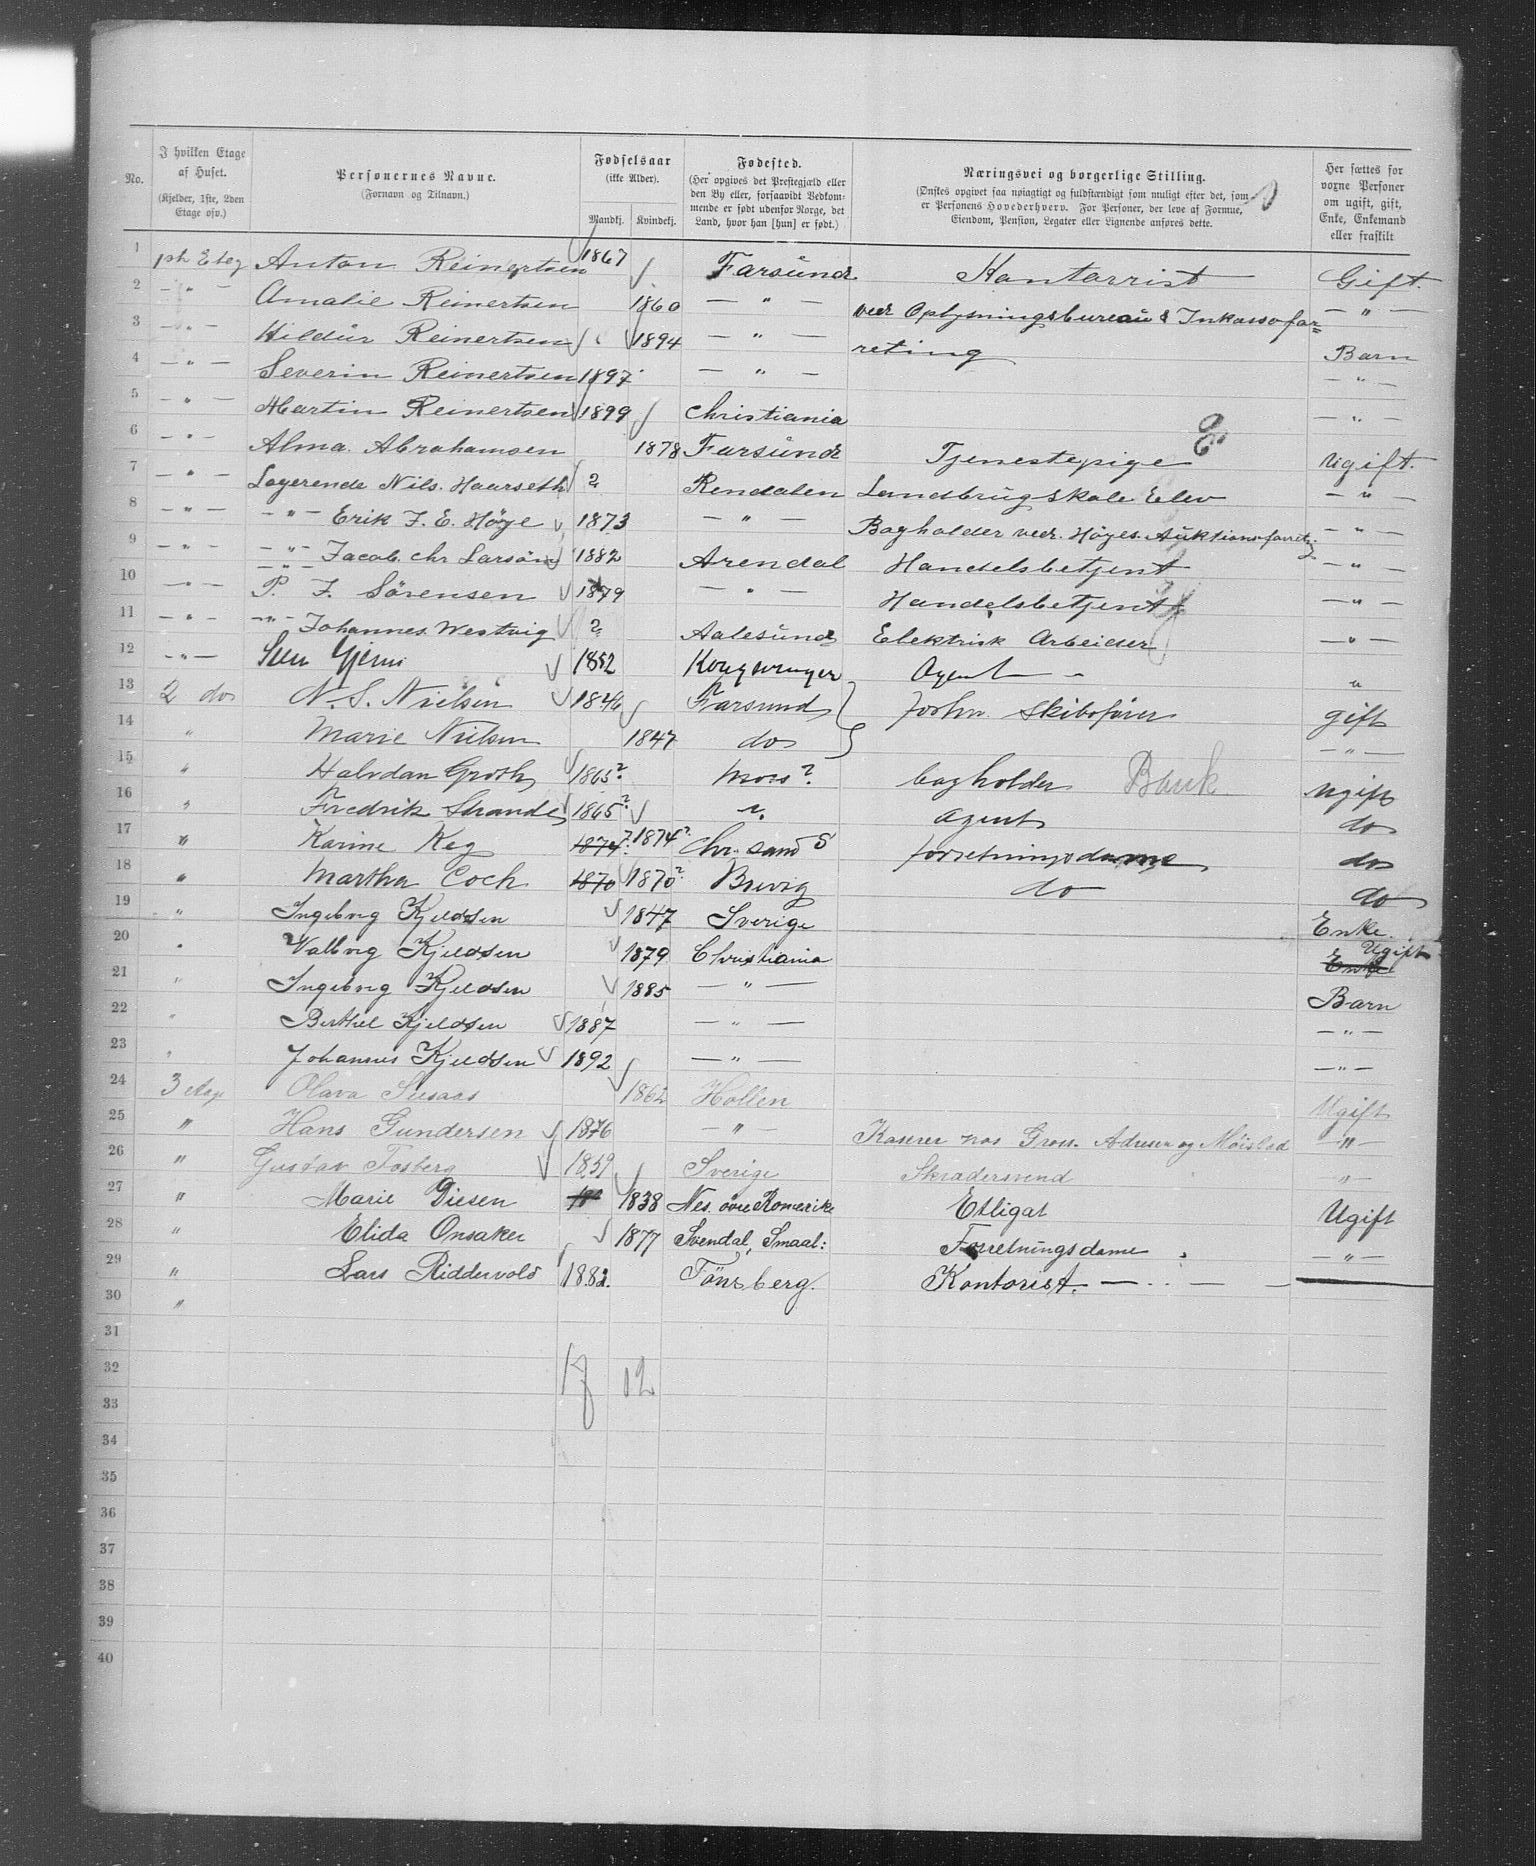 No.
I hvilken Etage af Huset.
(Kjelder, 1ste, 2den Etage osv.)
Personernes Navne.
(Fornavn og Tilnavn.)
Fødselsaar
(ikke Alder).
Mandkj. Kvindekj.
Fødested.
(Her opgives det Prestegjæld eller
den By eller, forsaavidt Vedkom-
mende er født udenfor Norge, det
Land, hvor han [hun] er født.)
Næringsvei og borgerlige Stilling.
(Ønskes opgivet saa nøiagtigt og fuldstændigt som muligt efter det, som
er Personens Hovederhverv. For Personer, der leve af Formue,
Eiendom, Pension, Legater eller Lignende anføres dette.
Her sættes for
voxne Personer
om ugift, gift,
Enke, Enkemand
eller fraskilt
1 Anton Reinertsen 1867 Farsund Kontorrist Gift.
2 — " — Amalie Reinertsen 1860 — " — ved Oplysningsbureau & Inkassofor= — " —
3 — " — Hildur Reinertsen 1894 — " — reting Barn
4 — " — Severin Reinertsen 1897 — " — — " —
5 — " — Martin Reinertsen 1899 Christiania — " —
6 — " — Alma Abrahamsen 1878 Farsund Tjenestepige Ugift.
7 — " — Logerende Nils Haarseth ? Rendalen Landbrugskole Elev — " —
8 — " — — " — Erik F. E. Høye 1873 — " — Bogholder ved Høyes Auktionsforret. — " —
9 — " — — " — Jacob. Chr Larson 1882 Arendal Handelsbetjent — " —
10 — " — — " — P. F. Sörensen 1879 — " — Handelsbetjent — " —
11 — " — — " — Johannes Westvig ? Aalesund Elektrisk Arbeider — " —
12 — " — 1852 Kongsvinger Agent — "
13 2 do N. S. Nielsen 1846 Farsund forhv. Skibsfører gift
14 " Marie Nielsen 1847 do — " —
15 " Halvdan Groth 1865? Moss? bogholder Bank ugift
16 " Fredrik Strande 1865? ". agent do
17 " Karine Keg 1874? 1874? Chr. sand S forretningsdame do
18 " Martha Coch 1870 1870? Brevig do do
19 " Ingebrg Kjeldsen 1847 Sverige Enke.
20 " Valbrg Kjeldsen 1879 Christiania Enke Ugift
21 " Ingebrg Kjeldsen 1885 — " — Barn
22 " Berthel Kjeldsen 1887 — " — — " —
23 " Johannes Kjeldsen 1892 — " — — " —
24 3 etage Olava 1862 Hollen Ugift
25 " Hans Gundersen 1876 — " — Kaserer hos Gross. Adresen og Möistad — " —
26 " Gustav Fosberg 1859 Sverige Skradersvend — " —
27 " Marie Diesen 18 1838 Nes. övre Romerike Ugift
28 " Elida Onsaker 1877 Svendal, Smaal: Forretningsdame — " —
29 " Lars Riddervold 1882. Tönsberg. Kontorist. — " —
30 "
31
32 17 12
33
34
35
36
37
38
39
40